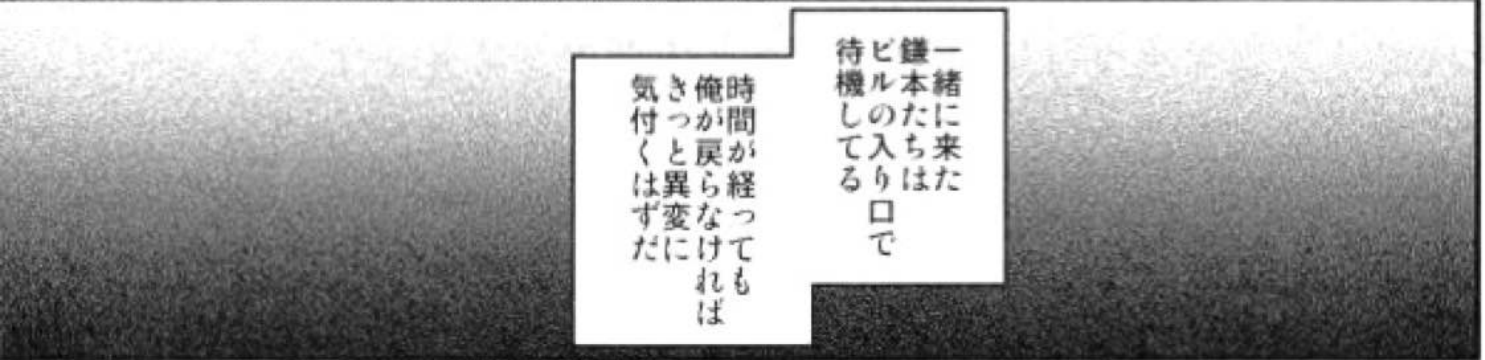 一緒に来た
鎌本たちは
ビルの入り口で
待機してる
時間が経っても
俺が戻らなければ
きっと異変に
気付くはずだ